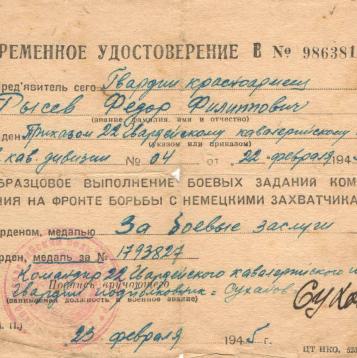 РЕМЕННОЕ УДОСТОВЕРЕНИЕ В № 986381
ред'явитель сего Гвардии красноармеец
Рысев Федор Филиппович
(звание фамилия, имя и отчество)
ден Приказом 22 Гвардейскому кавалерийскому
(указом или приказом)
кав. дивизии № 04 от 22 февраля 194
БРАЗЦОВОЕ ВЫПОЛНЕНИЕ БОЕВЫХ ЗАДАНИЙ КОМ
НИЯ НА ФРОНТЕ БОРЬБЫ С НЕМЕЦКИМИ ЗАХВАТЧИКА
орденом, медалью За боевые заслуги
рден, медаль за № 1793827
Командир 22 Гвардейского кавалерийского
Подпись вручающего
Гвардии подполковник = Сухабов
(занимаемая должность и военное звание)
23 февраля 1945 г.